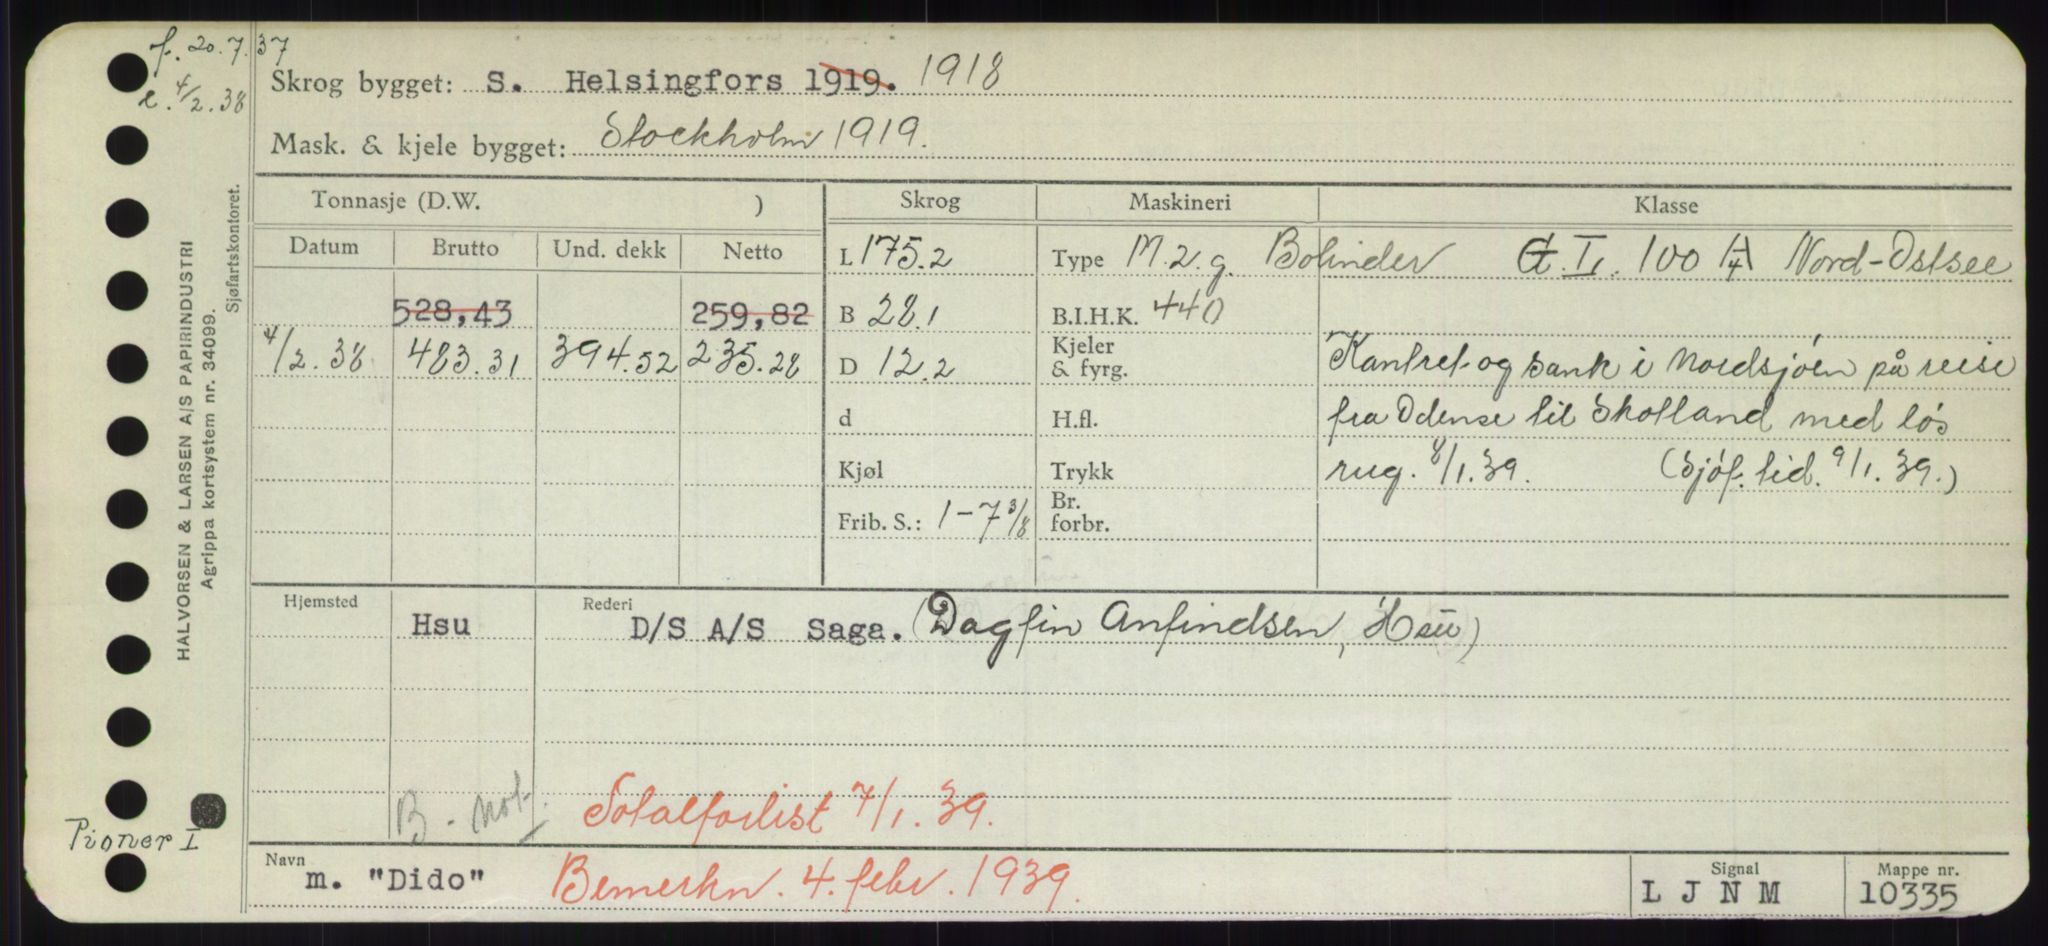 f. 20.7.37
e. 4/2.38
Skrog bygget: S. Helsingfors 1919. 1918
Mask. & kjele bygget: Stockholm 1919.
Tonnasje (D.W. ) Skrog Maskineri Klasse
Datum Brutto Und. dekk Netto L 175.2 Type M 2. g. Bolinder G.L. 100 A/4 Nord-Ostsee
528,43 259,82 B 28.1 B.I.H.K. 440
4/2.38 483.31 394.52 235.28 D 12.2 Kjeler & fyrg. Kantret og sank i Nordsjøen på reise
d H.fl. fra Odense til Skotland med løs
Kjøl Trykk rug. 8/1.39. (Sjøf. tid. 9/1.39.)
Frib. S.: 1-7 3/8 Br. forbr.
Hjemsted Hsu Rederi D/S A/S Saga. (Dagfin Anfindsen, Hsu)
B. not. Totalforlist 7/1.39.
Pioner I
Navn m. "Dido" Bemerkn. 4. febr. 1939. Signal L J N M Mappe nr. 10335
HALVORSEN & LARSEN A/S PAPIRINDUSTRI
Agrippa kortsystem nr. 34099.
Sjøfartskontoret.